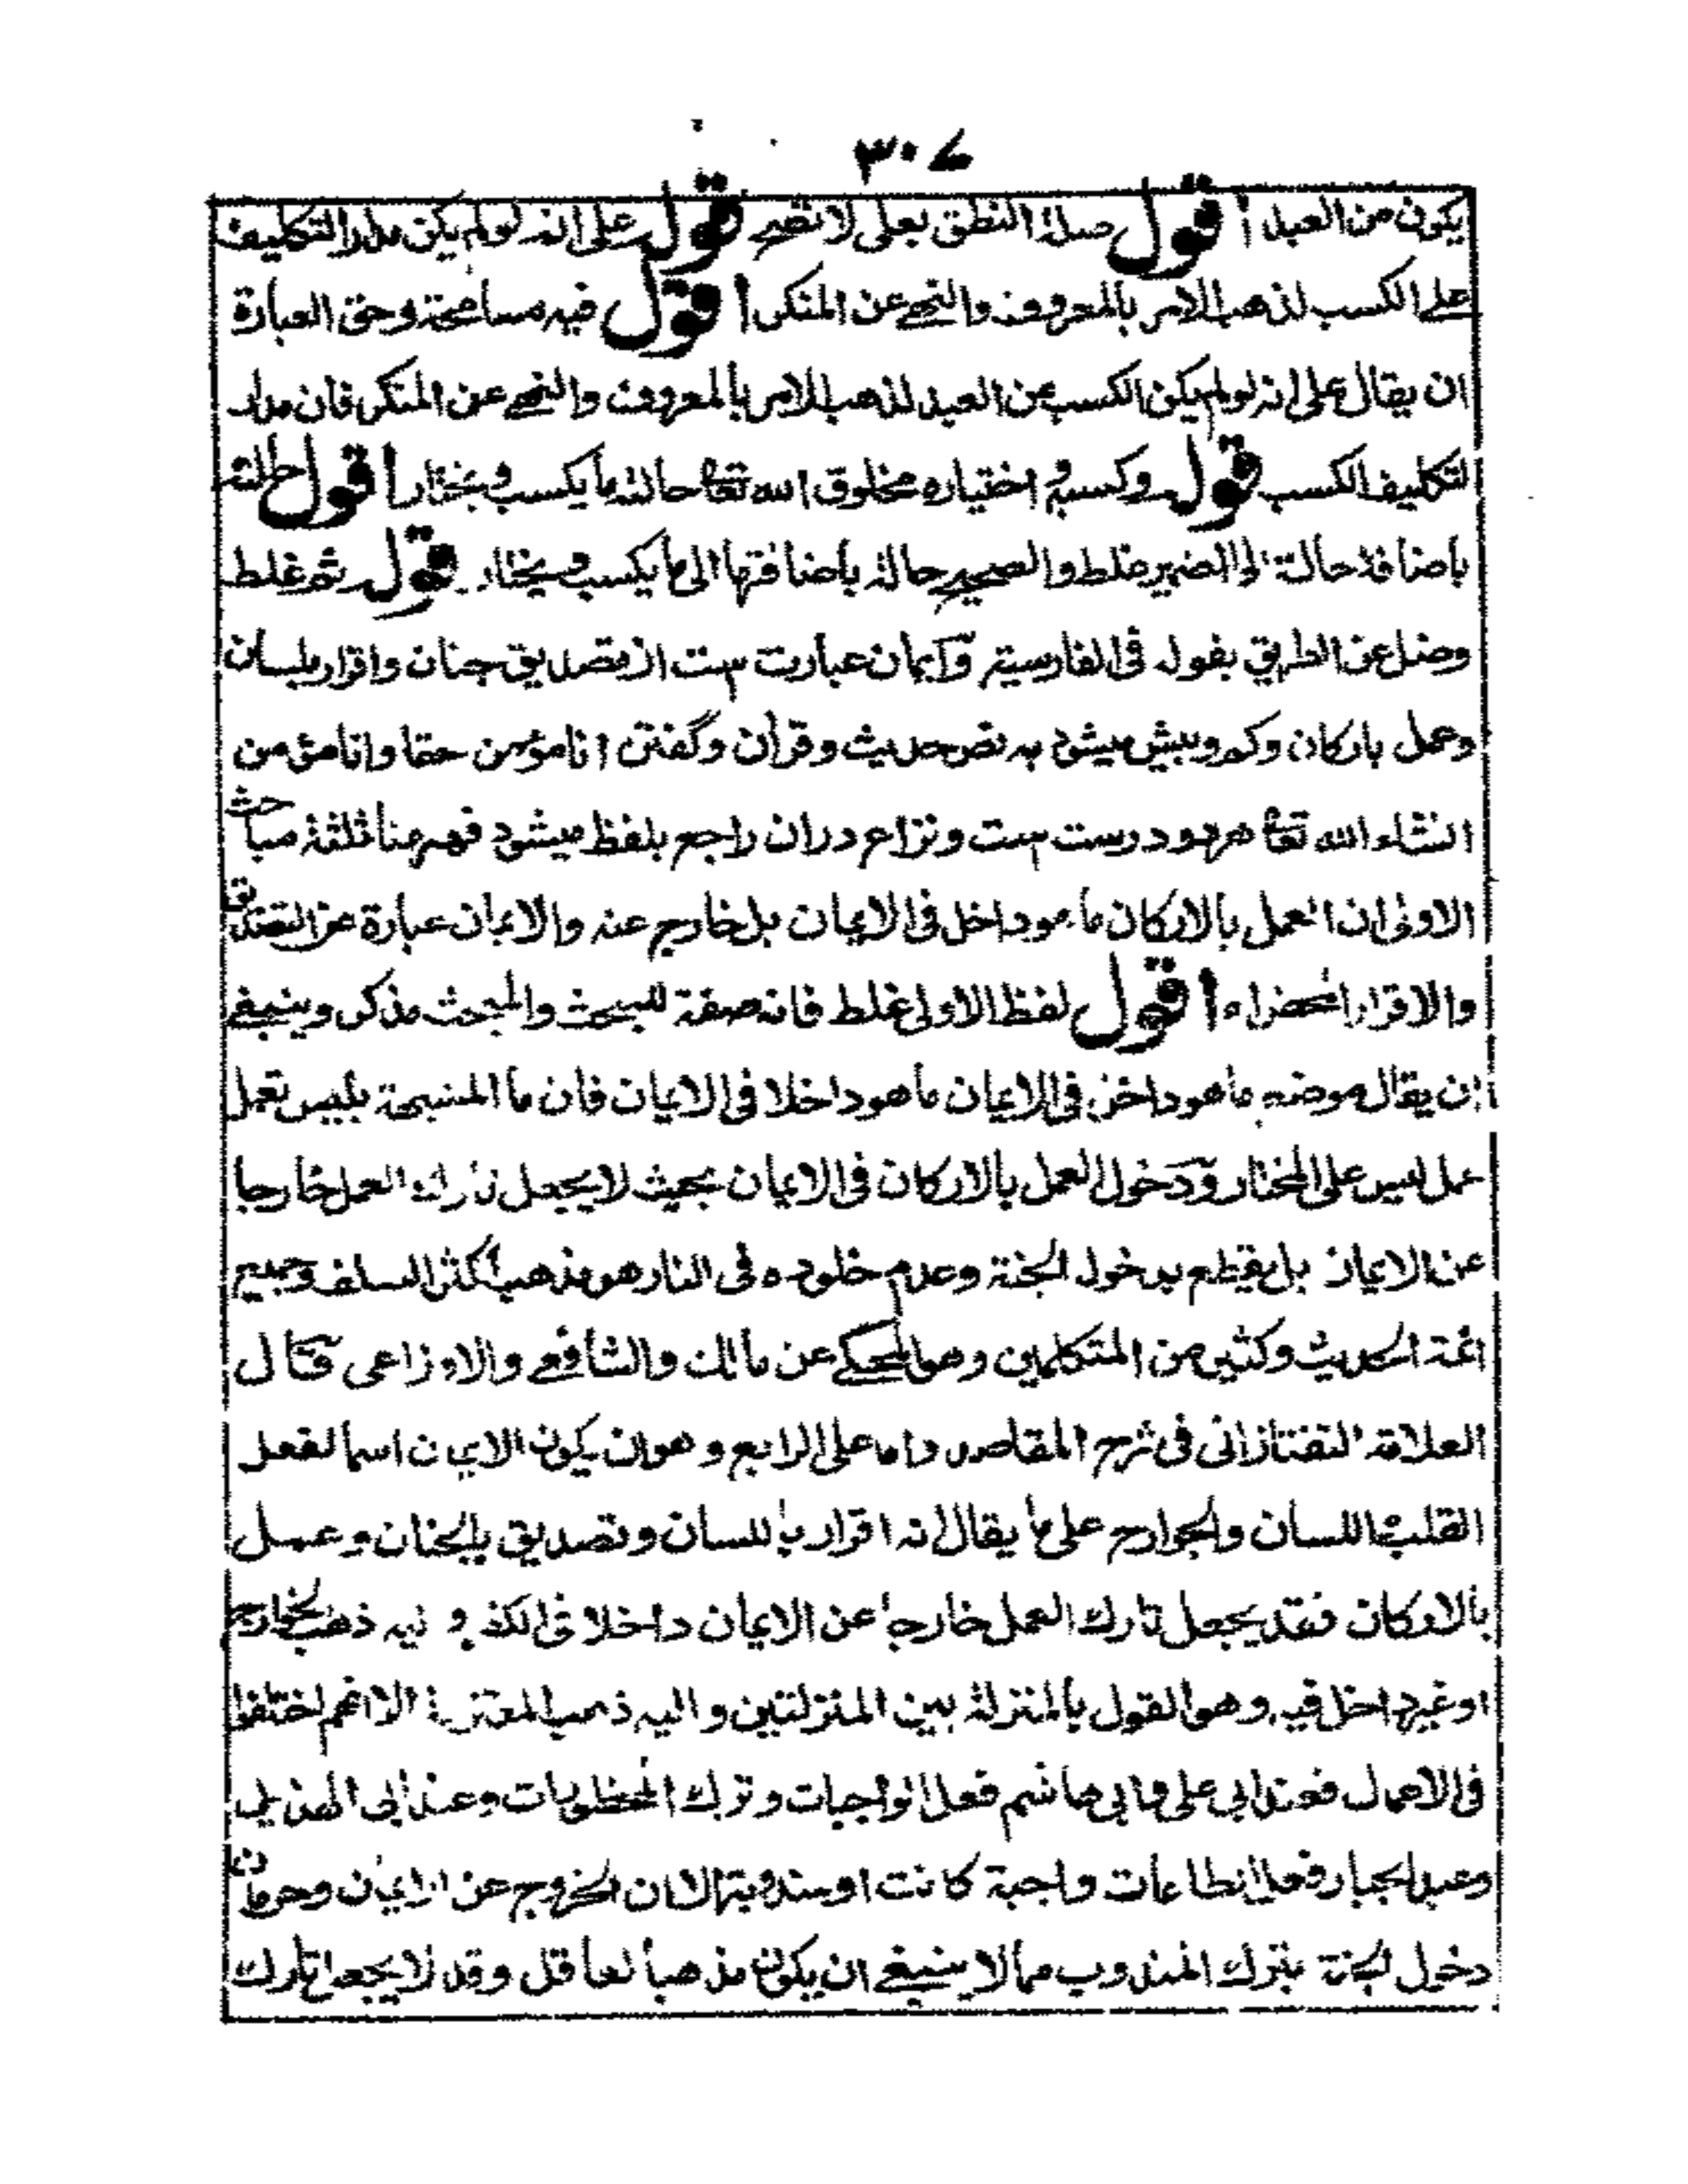 ٣٠٧
يكون من العبد اقول صلة النطق بعلى لا تصح قوله على انه لو لم يكن مدار التكليف
على الكسب لذهب الامر بالمعروف والنهي عن المنكر اقول فيه مسامحة وحق العبارة
ان يقال على انه لو لم يكن الكسب من العبد لذهب الامر بالمعروف والنهي عن المنكر فان مدار
التكليف الكسب قوله وكسبه و اختياره مخلوق الله تعا حالته ما يكسب ويختار اقول حالته
باضافة حالة الى الضمير غلط والصحيح حالة باضافتها الى ما يكسب ويختار قوله ثم غلط
وضل عن الطريق بقوله فى الفارسية وايمان عبارت ست از تصديق جنان واقرار بلسان
وعمل باركان وكم وبيش ميشود به نص حديث وقرآن وگفتن انا مؤمن حقا وانا مؤمن
انشاء الله تعا هردو درست ست ونزاع دران راجع بلفظ ميشود فههنا ثلثة مباحث
الاولى ان العمل بالاركان ما هو داخل فى الايمان بل خارج عنه والايمان عبارة عن التصديق
والاقرار اقول لفظ الاولى غلط فانه صفة للمبحث والمبحث مذكر وينبغي
ان يقال موضع ما هو داخل فى الايمان ما هو داخلا فى الايمان فان ما المشبهة بليس تعمل
عمل ليس على المختار ودخول العمل بالاركان فى الايمان بحيث لا يجعل تارك العمل خارجا
عن الايمان بل يقطع بدخول الجنة وعدم خلوده فى النار هو مذهب اكثر السلف وجميع
ائمة الحديث وكثير من المتكلمين وهو المحكي عن مالك والشافعي والاوزاعى قال
العلامة التفتازانى فى شرح المقاصد واما على الرابع وهو ان يكون الايمان اسما لفعل
القلب واللسان والجوارح على ما يقال انه اقرار باللسان وتصديق بالجنان وعمل
بالاركان فقد يجعل تارك العمل خارجا عن الايمان داخلا فى الكفر و اليه ذهب الخوارج
او غير داخل فيه وهو القول بالمنزلة بين المنزلتين واليه ذهب المعتزلة الا انهم اختلفوا
فى الاعمال فعند ابى على وابى هاشم فعل الواجبات وترك المحظورات وعند أبى الهذيل
وعبد الجبار فعل الطاعات واجبة كانت او مندوبة الا ان الخروج عن الايمان وحرمان
دخول الجنة بترك المندوب مما لا ينبغي ان يكون مذهبا لعاقل وقد لا يجعل تارك